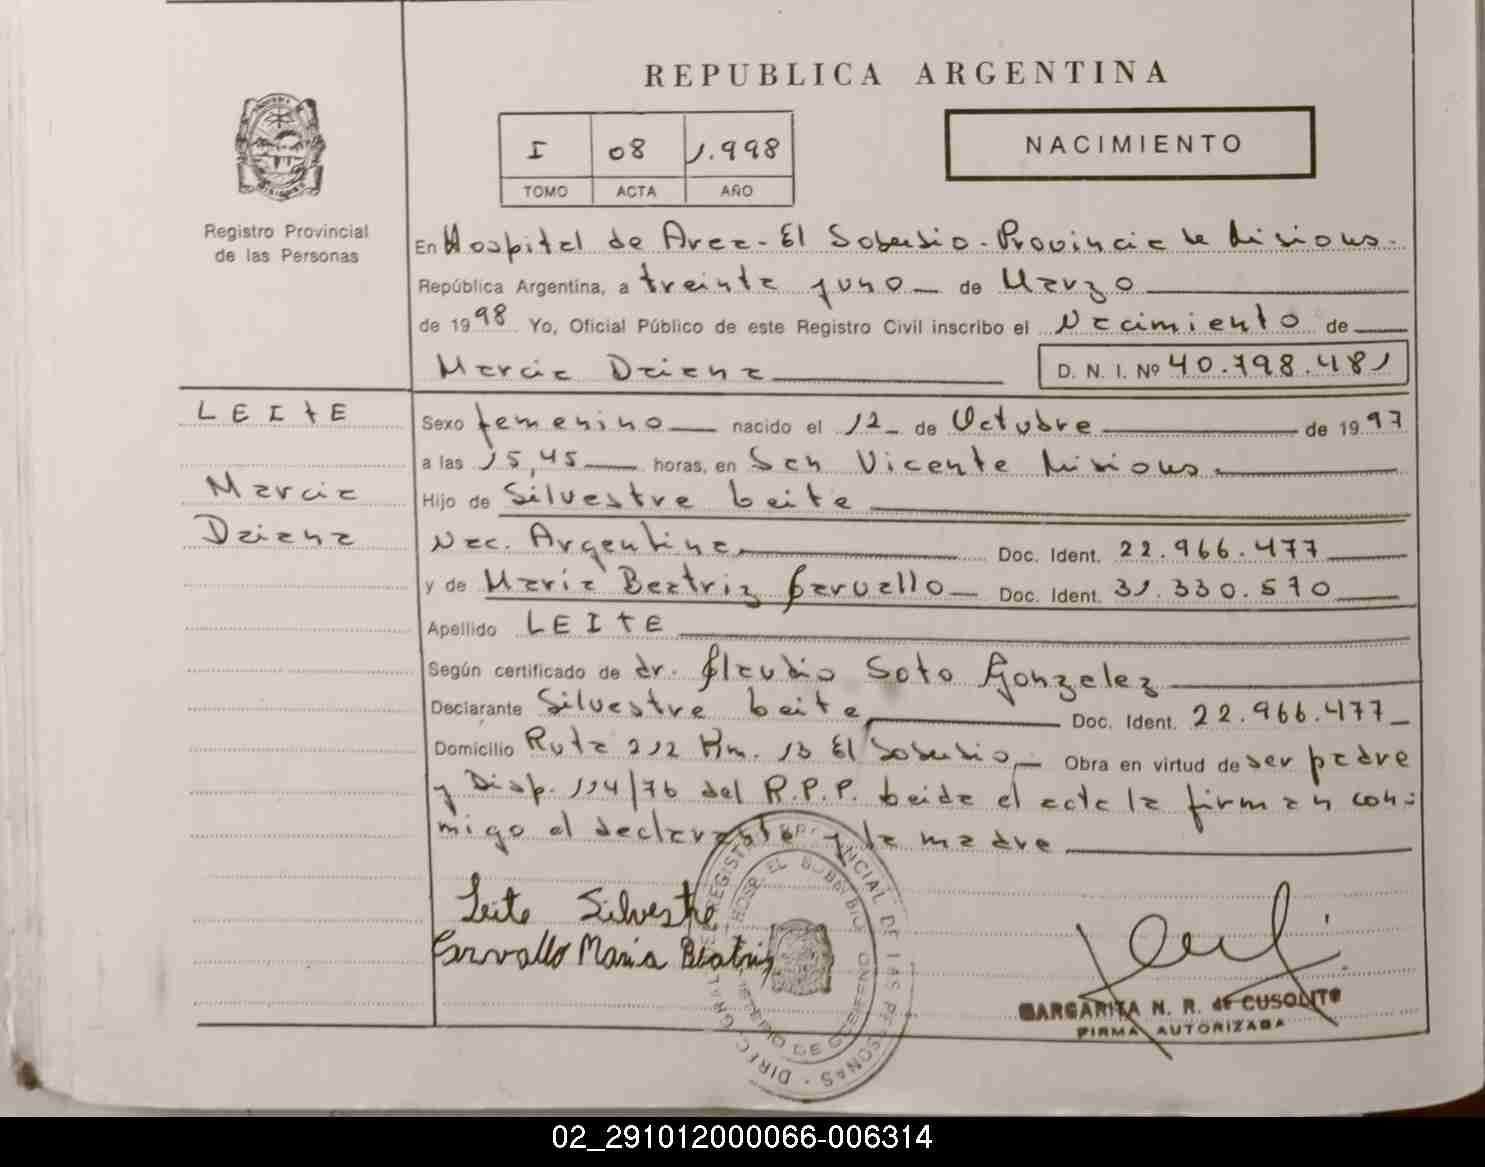 REPUBLICA ARGENTINA
I 08 1.998
TOMO ACTA AÑO
NACIMIENTO
Registro Provincial
de las Personas
En Hospital de Area - El Soberbio - Provincia de Misiones.
República Argentina, a treinta y uno de Marzo
de 1998 Yo, Oficial Público de este Registro Civil inscribo el Nacimiento de
Marcia Daiana
D. N. I. Nº 40.798.481
LEITE
Sexo femenino nacido el 12 de Octubre de 1997
a las 15,45 horas, en San Vicente Misiones.
Marcia
Hijo de Silvestre Leite
Daiana
Nac. Argentina Doc. Ident. 22.966.477
y de María Beatriz Carvallo Doc. Ident. 31.330.570
Apellido LEITE
Según certificado de dr. Claudio Soto Gonzalez
Declarante Silvestre Leite Doc. Ident. 22.966.477
Domicilio Ruta 212 Km. 13 El Soberbio Obra en virtud de ser padre
y Disp. 114/76 del R.P.P. Leida el acta la firman con-
migo el declarante y la madre
Leite Silvestre
Carvallo Maria Beatriz
MARGARITA N. R. de CUSOLITO
FIRMA AUTORIZADA
02_291012000066-006314